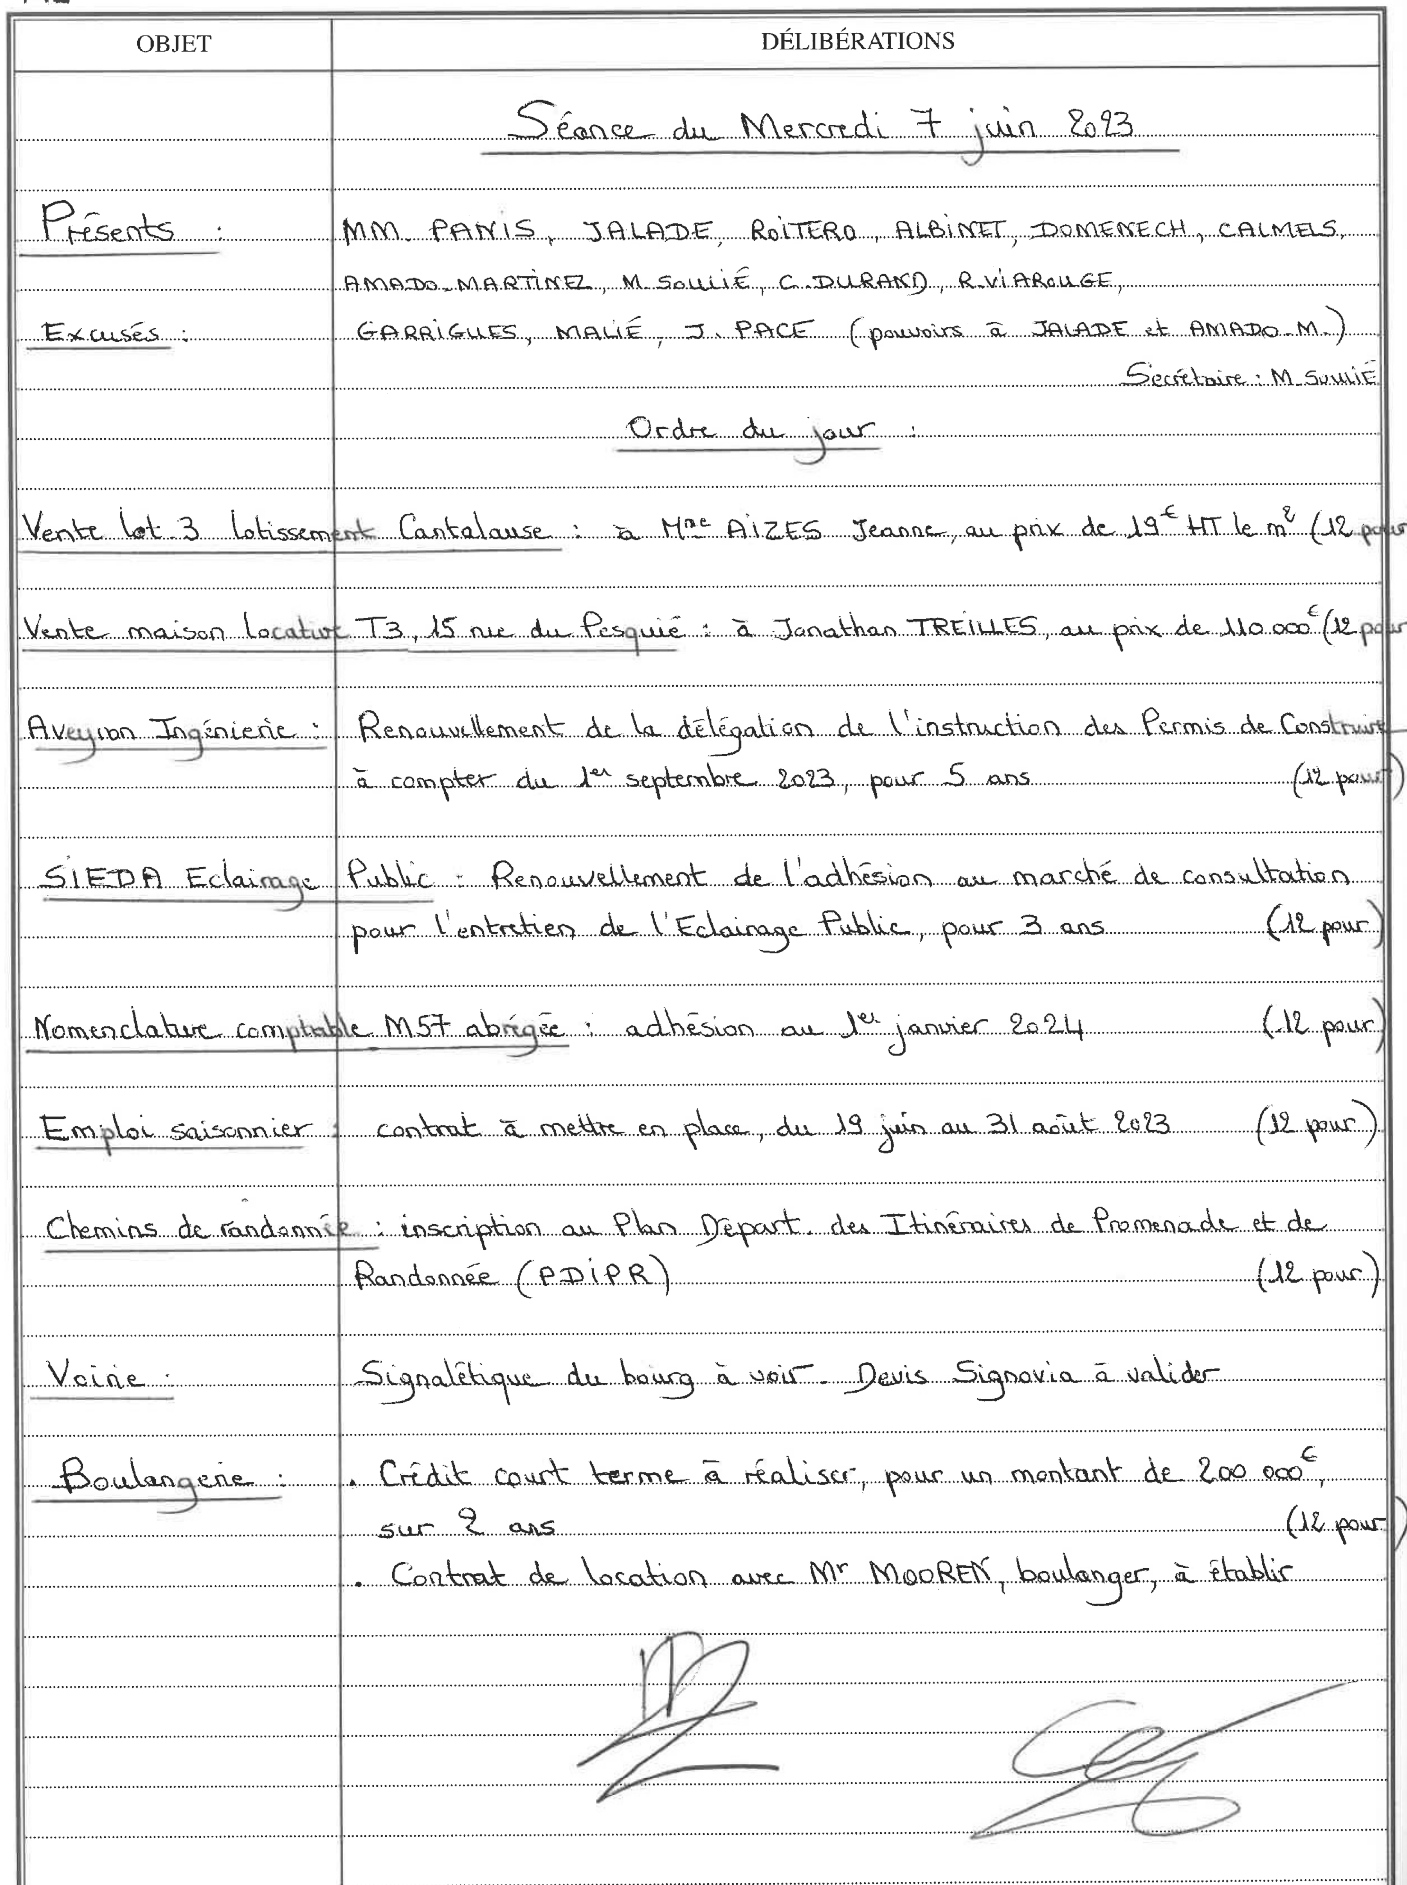 OBJET DÉLIBÉRATIONS
Séance du Mercredi 7 juin 2023
Présents : MM. PANIS, JALADE, ROITERO, ALBINET, DOMENECH, CALMELS,
AMADO-MARTINEZ, M. SOULIÉ, C. DURAND, R. VIAROUGE,
Excusés : GARRIGUES, MALIÉ, J. PACE (pouvoirs à JALADE et AMADO-M.)
Secrétaire : M. SOULIÉ
Ordre du jour :
Vente lot 3 lotissement Cantalause : à Mme AIZES Jeanne, au prix de 19€ HT le m² (12 pour
Vente maison locative T3, 15 rue du Pesquié : à Jonathan TREILLES, au prix de 110 000€ (12 pour
Aveyron Ingénierie : Renouvellement de la délégation de l'instruction des Permis de Construire
à compter du 1er septembre 2023, pour 5 ans (12 pour)
SIEDA Eclairage Public : Renouvellement de l'adhésion au marché de consultation
pour l'entretien de l'Eclairage Public, pour 3 ans (12 pour)
Nomenclature comptable M57 abrégée : adhésion au 1er janvier 2024 (12 pour)
Emploi saisonnier : contrat à mettre en place, du 19 juin au 31 août 2023 (12 pour)
Chemins de randonnée : inscription au Plan Départ. des Itinéraires de Promenade et de
Randonnée (PDIPR) (12 pour)
Voirie : Signalétique du bourg à voir. Devis Signovia à valider
Boulangerie : . Crédit court terme à réaliser, pour un montant de 200 000€,
sur 2 ans (12 pour)
. Contrat de location avec Mr MOOREN, boulanger, à établir